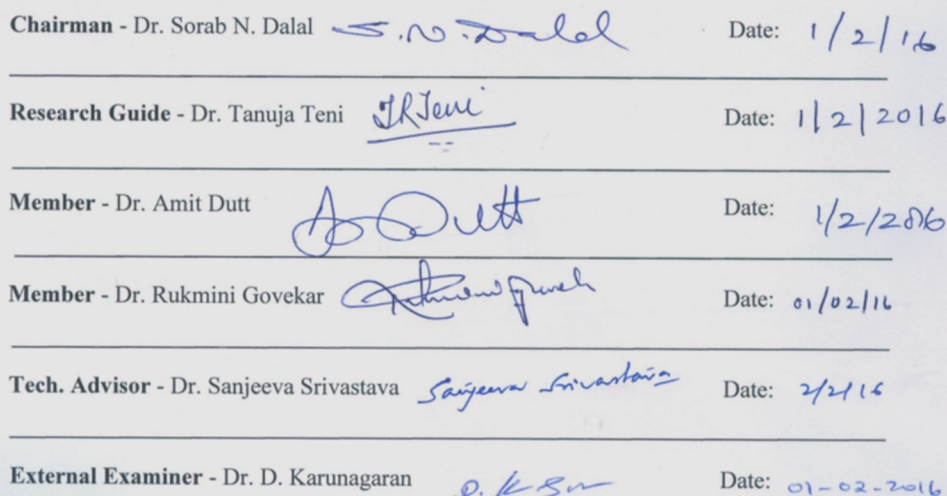 Chairman - Dr. Sorab N. Dalal S.N. Dalal Date: 1/2/16
Research Guide - Dr. Tanuja Teni TRTeni Date: 1/2/2016
Member - Dr. Amit Dutt A Dutt Date: 1/2/2016
Member - Dr. Rukmini Govekar Date: 01/02/16
Tech. Advisor - Dr. Sanjeeva Srivastava Sanjeeva Srivastava Date: 2/2/16
External Examiner - Dr. D. Karunagaran Date: 01-02-2016